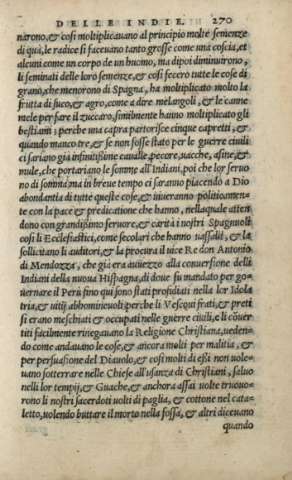 DELLE INDIE. 270
narono, & cosi moltiplicauano al principio molte semenze
di quà, le radice si faceuano tanto grosse come una coscia, et
alcuni come un corpo de un huomo, ma dipoi diminuirono,
li seminati delle loro semenze, & cosi fecero tutte le cose di
grano, che menorono di Spagna, ha moltiplicato molto la
frutta di suco, & agro, come a dire melangoli, & le canne
mele per fare il zuccaro, similmente hanno moltiplicato gli
bestiami: perche una capra partorisce cinque capretti, &
quando manco tre, & se non fosse stato per le guerre ciuili
ci sariano gia infinitissime caualle, pecore, uacche, asine, &
mule, che portariano le somme all'Indiani, poi che lor seruo
no di somma ma in breue tempo ci saranno piacendo a Dio
abondantia di tutte queste cose, & uiueranno politicamen-
te con la pace & predicatione che hanno, nella quale atten
dono con grandissimo feruore, & carità i nostri Spagnuoli
cosi li Ecclesiastici, come secolari che hanno uassalli, & la
sollicitano li auditori, & la procura il uice Re don Antonio
di Mendozza, che già era auuezzo alla conuersione delli
Indiani della nuoua Hispagna, di doue fu mandato per go-
uernare il Peru fino qui sono stati profidiati nella lor Idola
tria, & uitij abbomineuoli perche li Vescoui frati, & preti
si erano meschiati & occupati nelle guerre ciuili, e li cōuer
titi facilmente rinegauano la Religione Christiana, ueden-
do come andauano le cose, & ancora molti per malitia, &
per persuasione del Diauolo, & cosi molti di essi non uole-
uano sotterrare nelle Chiese all'usanza di Christiani, saluo
nelli lor tempij, & Guache, & anchora assai uolte truouo-
rono li nostri sacerdoti uolti di paglia, & cottone nel cata-
letto, uolendo buttare il morto nella fossa, & altri diceuano
quando